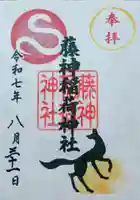 奉拝
藤神稲荷神社
藤神
神社
令和七年
八月三十一日